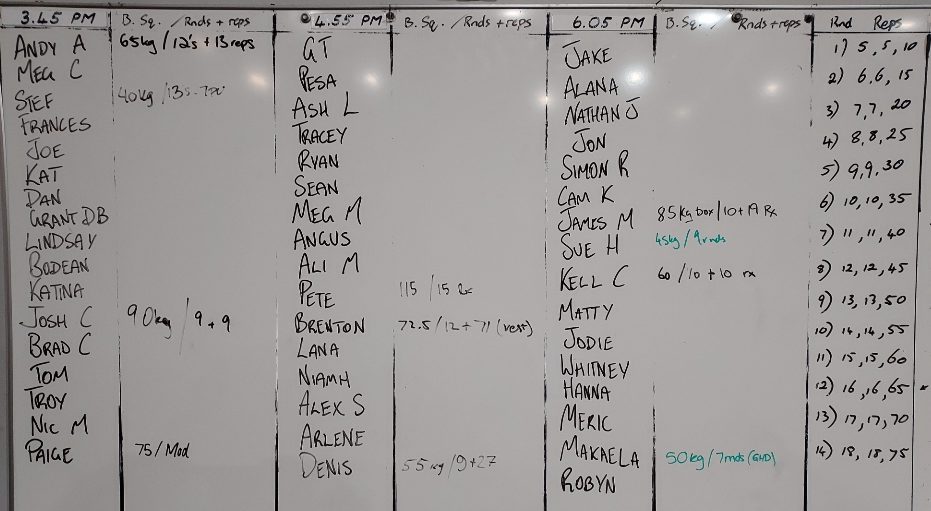 3.45 PM B. Sq. / Rnds + reps 4.55 PM B. Sq. / Rnds + reps 6.05 PM B. Sq. / Rnds + reps Rnd Reps
ANDY A 65kg / 12's + 13 reps GT JAKE 1) 5, 5, 10
MEG C PESA ALANA 2) 6, 6, 15
STEF 40kg ASH L NATHAN J 3) 7, 7, 20
FRANCES TRACEY JON 4) 8, 8, 25
JOE RYAN SIMON R 5) 9, 9, 30
KAT SEAN CAM K 6) 10, 10, 35
DAN MEG M JAMES M 85kg box / 10 + 19 Rx
GRANT DB ANGUS SUE H 45kg / 9 rnds 7) 11, 11, 40
LINDSAY ALI M KELL C 60 / 10 + 10 rx 8) 12, 12, 45
BODEAN PETE 115 / 15 Rx MATTY 9) 13, 13, 50
KATINA BRENTON 72.5 / 12 + 71 (vest) JODIE 10) 14, 14, 55
JOSH C 90kg / 9 + 9 LANA WHITNEY 11) 15, 15, 60
BRAD C NIAMH HANNA 12) 16, 16, 65
TOM ALEX S MERIC 13) 17, 17, 70
TROY ARLENE MAKAELA 50kg / 7rnds (GHD) 14) 18, 18, 75
NIC M DENIS 55kg / 9 + 27 ROBYN
PAIGE 75 / Mod